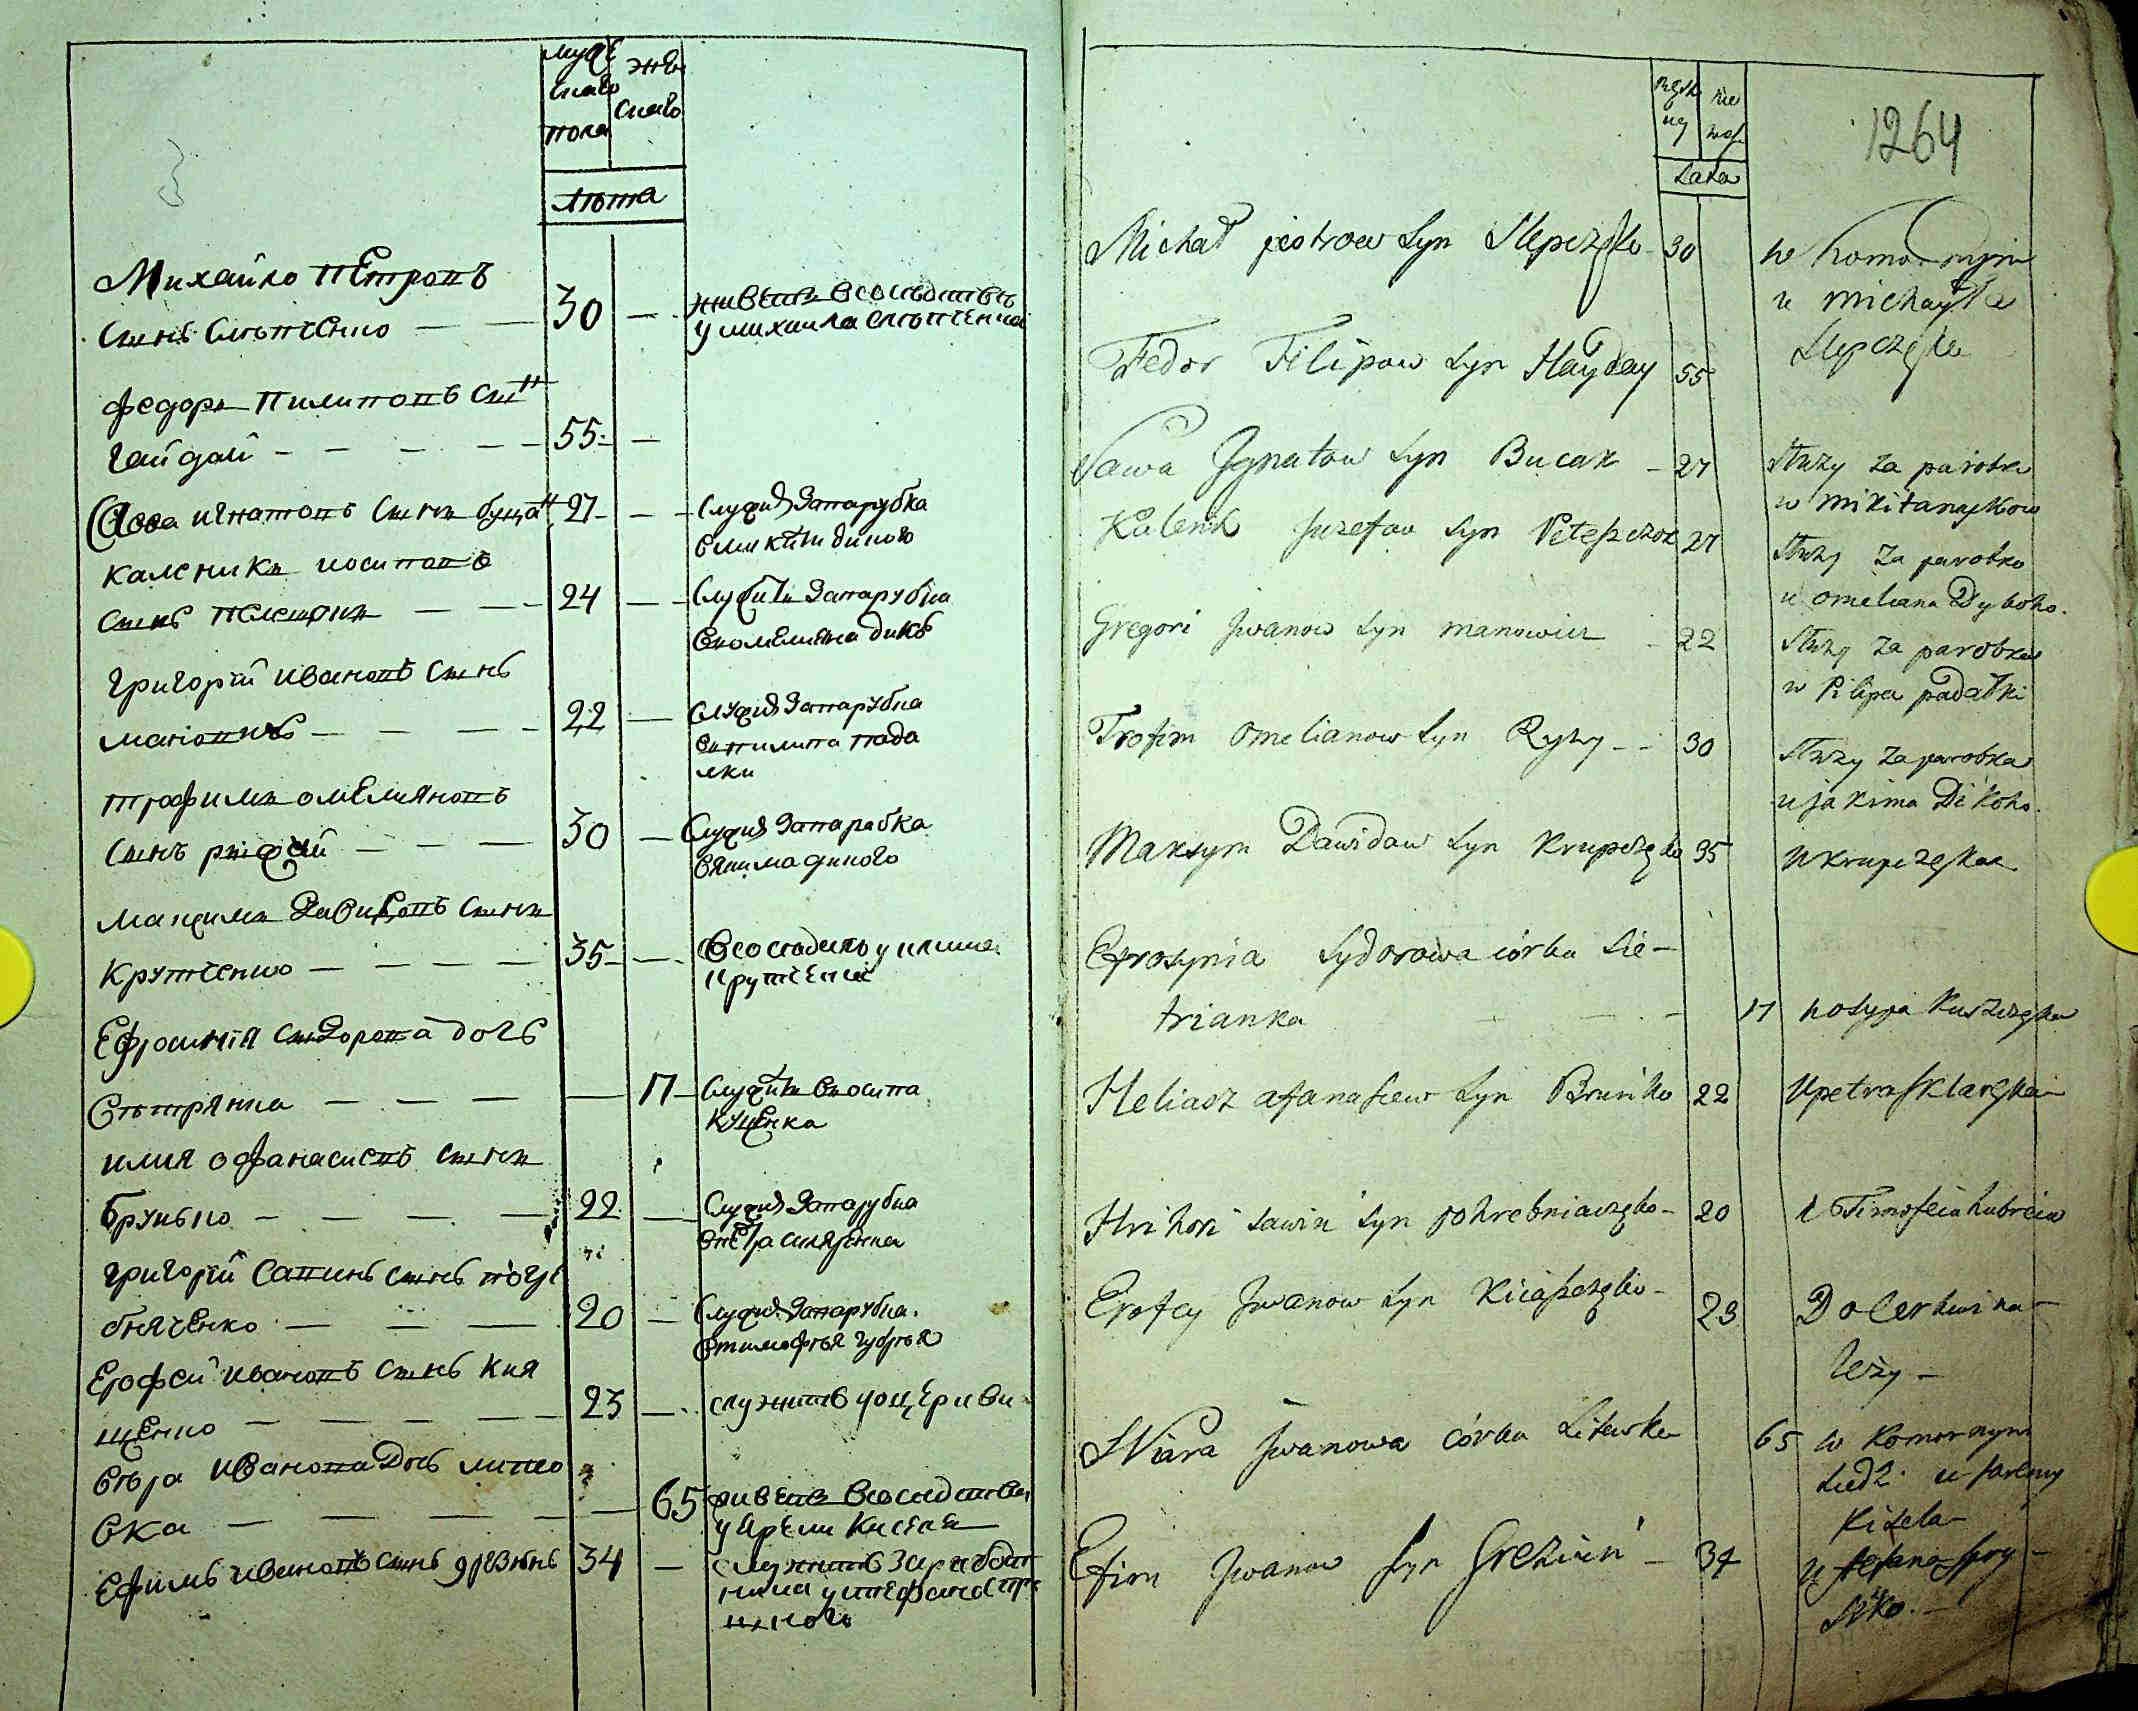 муже
ска
пола
жен
ска
лѣта
Михайло Петровъ
сынъ Слѣпченко 30 живетъ в сосѣдствѣ
у михаила слѣпченка
Федоръ Пилиповъ сын
Гайдай 55
Савва игнатовъ сынъ буцан 27 служитъ за парубка
в микити дикого
Каленикъ иосиповъ
сынъ 24 служитъ за парубка
в омеляна
Григорий ивановъ сынъ
22 служитъ за парубка
в пилипа пада
лки
трофимъ омеляновъ
сынъ рижий 30 служитъ за паробка
в якима дикого
максимъ Давидовъ сынъ
Крупченко 35 в сосѣдехъ у
крупченка
Ефросиния сидорова дочь
Сѣтрянка 17 служитъ в осипа
кущенка
илия офанасиевъ сынъ
Брунько 22 служитъ за парубка
в петра скляренка
григорий Савинъ сынъ погре
бняченко 20 служитъ за парубка
в тимофѣя губрѣя
Ерофей ивановъ сынъ кия
щенко 23 служитъ у церкви
Вѣра иванова дочь литво
вка 65 живетъ в сосѣдствѣ
у яреми киселя
Ефимъ ивановъ сынъ грезѣнь 34 служитъ за работ
ника у стефана спри
1264
męsk
ney
nie
was
Lata
Michał piotrow syn Slepczęko 30 w komornym
u michayła
Slepczęka
Fedor Filipow syn Hayday 55
Sawa Jgnatow syn Bucan 27 służy za parobka
w mikita
Kalenik Juzefow syn 27 służy za parobka
u omeliana Dykoho.
Gregori Jwanow syn manowicz 22 służy za parobka
w Pilipa padałki
Trofim Omelianow syn Ryży 30 służy za parobka
u jakima Dikoho.
Maksym Dawidow syn Krupczęko 35 u krupczęka
Efrosynia Sydorowa córka Sie-
trianka 17 u osypa Kuszczęka
Heliasz afanasiew syn Bruńko 22 u petra sklaręka
Hrihori sawin syn pohrebniaczęko 20 u Timofeia hubreia
Erofey Jwanow syn Kiiaszczęko 23 Do Cerkwi na-
leży
Wiara Jwanowa córka Litewka 65 w komornym
siedzi u jaremy
Kisela
Efim Jwanow syn Grezień 34 u stefana spry-